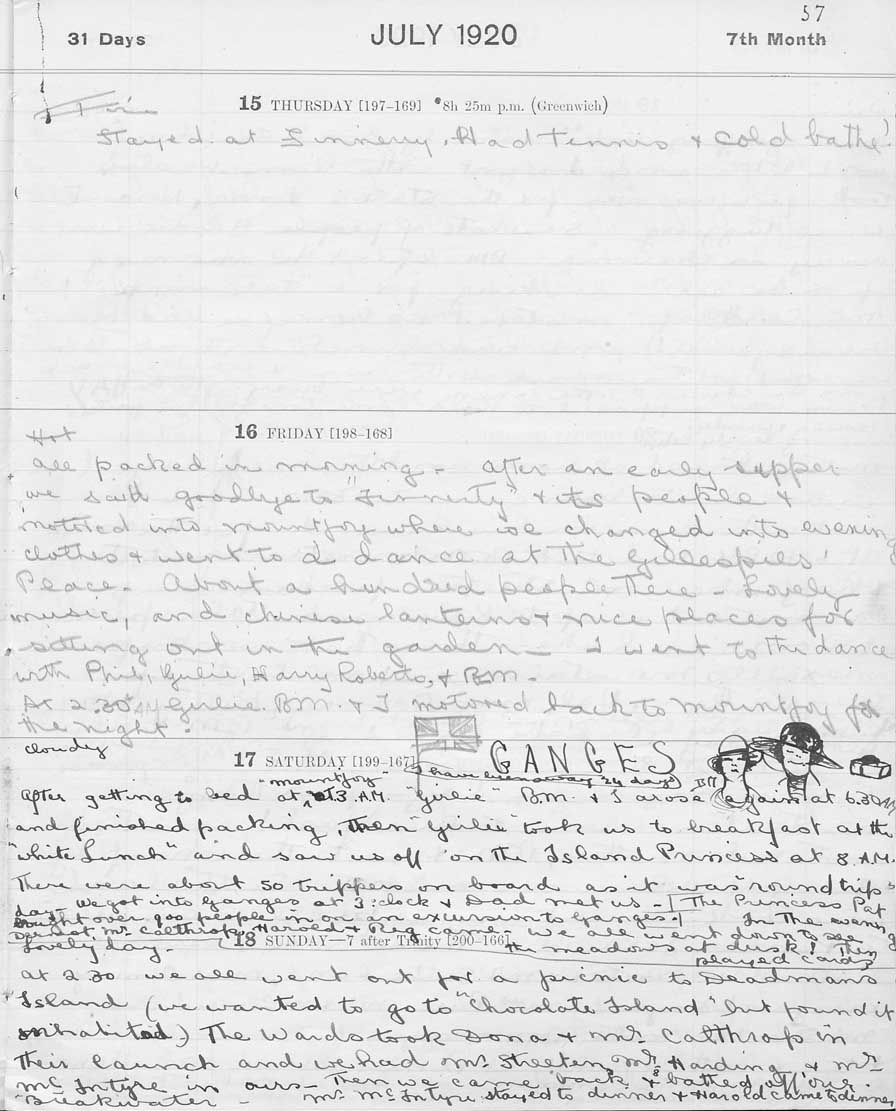 57
31 Days JULY 1920 7th Month
15 THURSDAY [197–169] 8h 25m p.m. (Greenwich)
Fine
Stayed at Finnerty. Had tennis & cold bathe!
16 FRIDAY [198–168]
Hot
all packed in morning - After an early supper
we said goodbye to "Finnerty" & its people &
motored into mountjoy where we changed into evening
clothes & went to a dance at the Gillespies'
Place. About a hundred people there - Lovely
music, and chinese lanterns & nice places for
sitting out in the garden - I went to the dance
with Phil, Gulie, Harry Roberts, & B.M.
At 2.30 AM Gulie. B.M. & I motored back to mountjoy for
the night.
cloudy
17 SATURDAY [199–167]
GANGES
(I have been away 24 days)
BM
After getting to bed at "mountjoy" at 3 A.M. "Girlie" B.M. & I arose again at 6.30 AM
and finished packing, then "Girlie" took us to breakfast at the
"White Lunch" and saw us off on the Island Princess at 8 A.M.
There were about 50 trippers on board as it was "round trip"
day - we got into Ganges at 3 o'clock & Dad met us - [The Princess Pat
brought over 900 people in on an excursion to Ganges.] In the evening
Mr. Calthrop, Harold & Reg came - we all went down to see
the meadows at dusk! Then
played cards
18 SUNDAY—7 after Trinity [200–166]
Lovely day.
at 2.30 we all went out for a picnic to Deadmans
Island (we wanted to go to "Chocolate Island" but found it
inhabited.) The Wards took Dona & Mr. Calthrop in
their launch and we had Mr. Streeten, Mrs Harding & Mr
McIntyre in ours - Then we came back & bathed off our
Breakwater - Mr. McIntyre stayed to dinner & Harold came to dinner